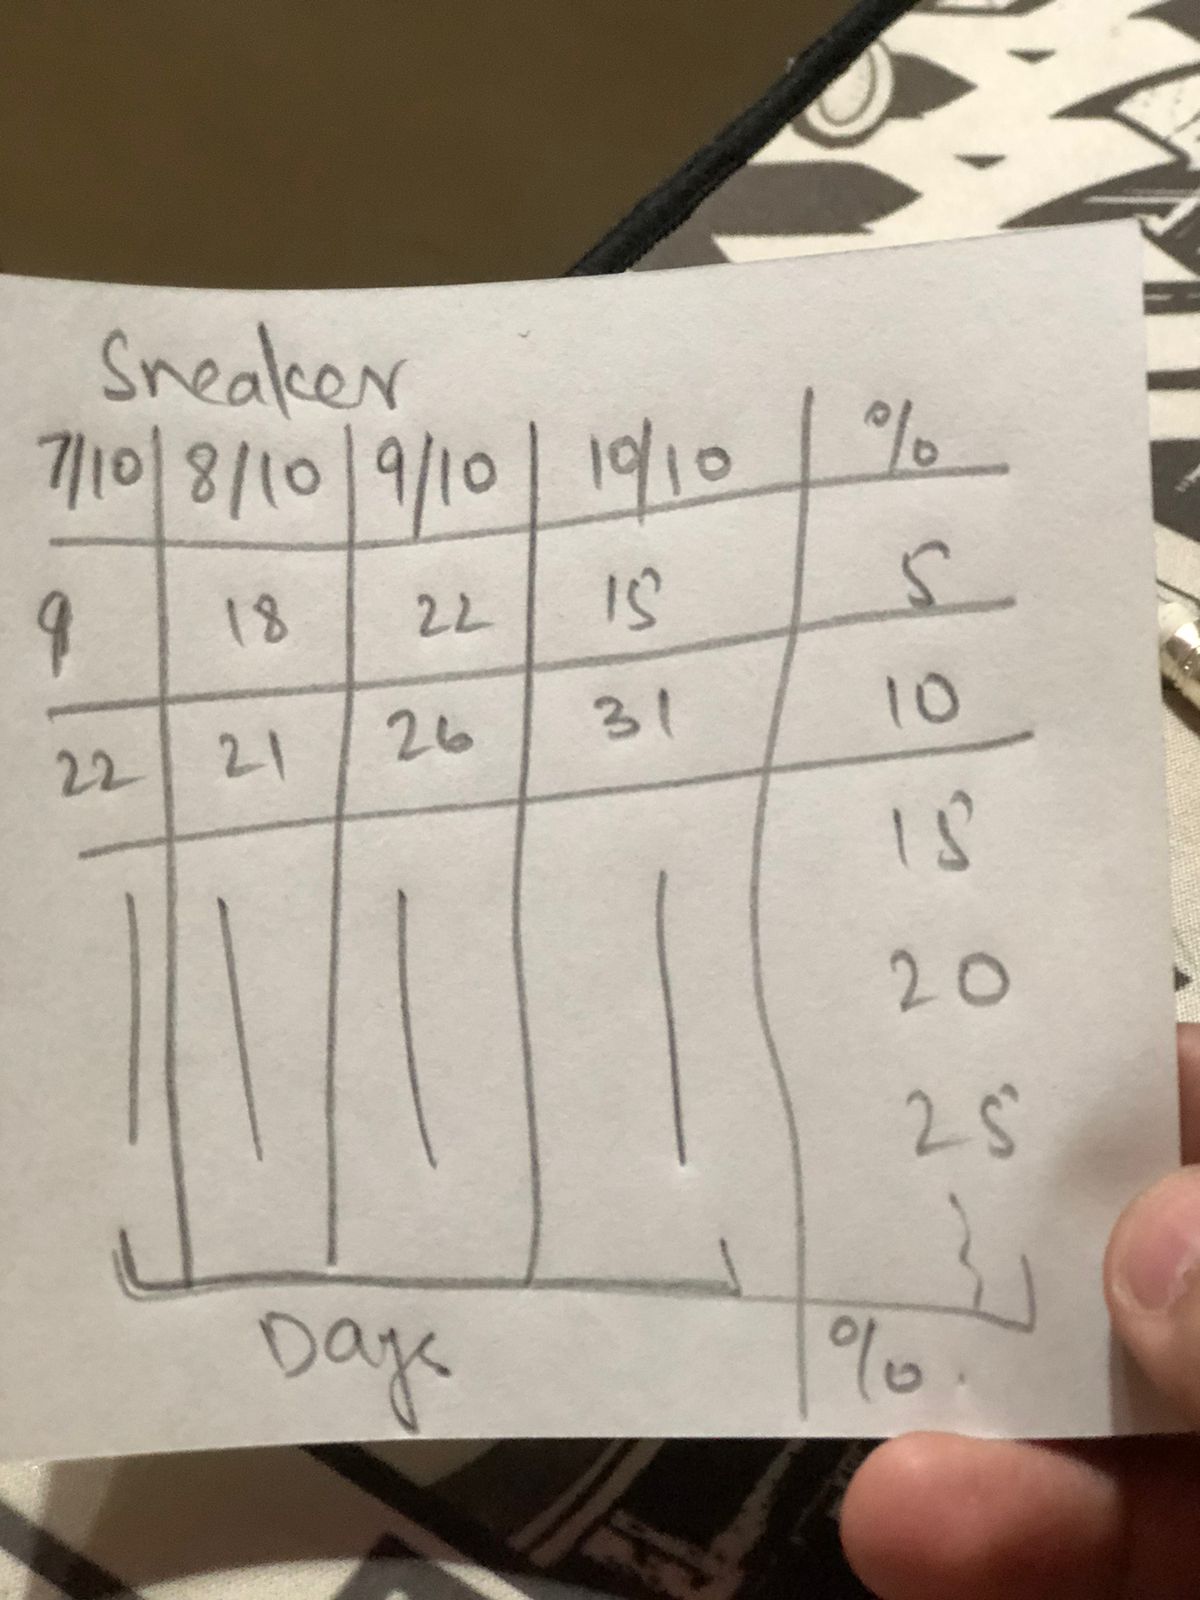 Sneaker
7/10 8/10 9/10 10/10 %
9 18 22 15 5
22 21 26 31 10
15
20
25
Days %